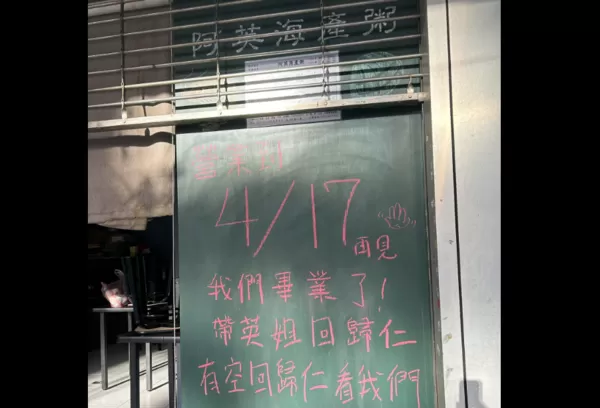 阿英海產粥
營業到
4/17
再見
我們畢業了!
帶英姐回歸仁
有空回歸仁看我們